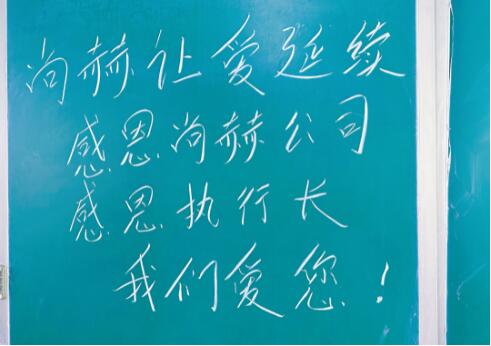 尚赫让爱延续
感恩尚赫公司
感恩执行长
我们爱您!